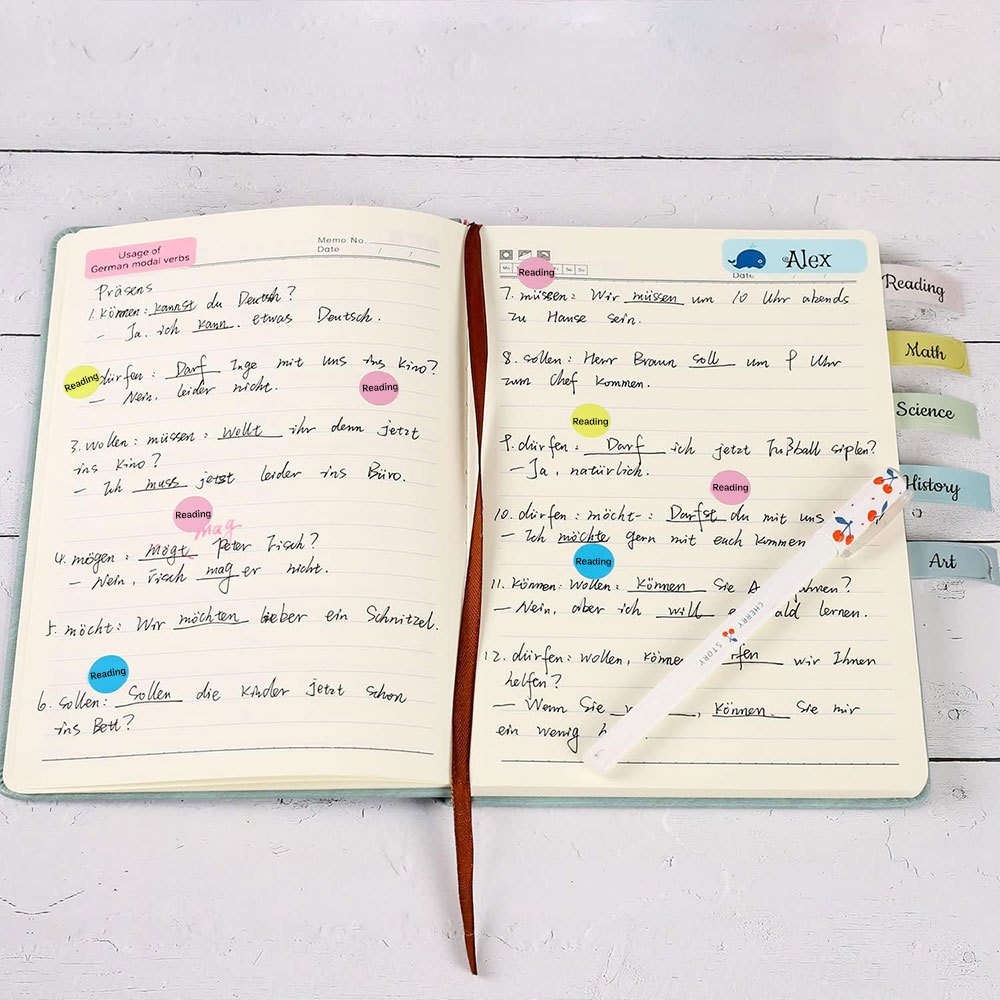 Usage of
German modal verbs
Memo No.
Date / /
Präsens
1. können: kannst du Deutsch?
- Ja, ich kann etwas Deutsch.
dürfen: Darf Inge mit uns ins Kino?
Reading
- Nein, leider nicht.
Reading
3. wollen: müssen: wollt ihr denn jetzt
ins Kino?
- Ich muss jetzt leider ins Büro.
Reading
mag
4. mögen: mögt Peter Fisch?
- Nein, Fisch mag er nicht.
5. möcht: Wir möchten lieber ein Schnitzel.
Reading
6. sollen: Sollen die Kinder jetzt schon
ins Bett?
Alex
Date / /
Mo Sa Su
Reading
7. müssen: Wir müssen um 10 Uhr abends
zu Hause sein.
8. sollen: Herr Braun soll um Uhr
zum Chef kommen.
Reading
9. dürfen: Darf ich jetzt Fußball siplen?
- Ja, natürlich.
Reading
10. dürfen: möcht-: Darfst du mit uns
- Ich möchte gern mit euch kommen
Reading
11. können: wollen: können Sie
- Nein, aber ich will lernen.
12. dürfen: wollen, wir Ihnen
helfen?
- Wenn Sie , können Sie mir
ein wenig
CHERRY STORY
Reading
Math
Science
History
Art